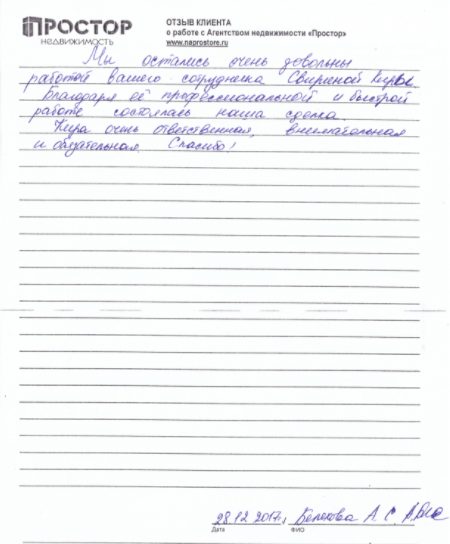 ПРОСТОР
НЕДВИЖИМОСТЬ
ОТЗЫВ КЛИЕНТА
о работе с Агентством недвижимости «Простор»
www.naprostore.ru
Мы остались очень довольны
работой вашего сотрудника Свириной Киры.
Благодаря её профессиональной и быстрой
работе состоялась наша сделка.
Кира очень ответственная, внимательная
и обязательная. Спасибо!
28.12.2017г. А. С.
Дата ФИО